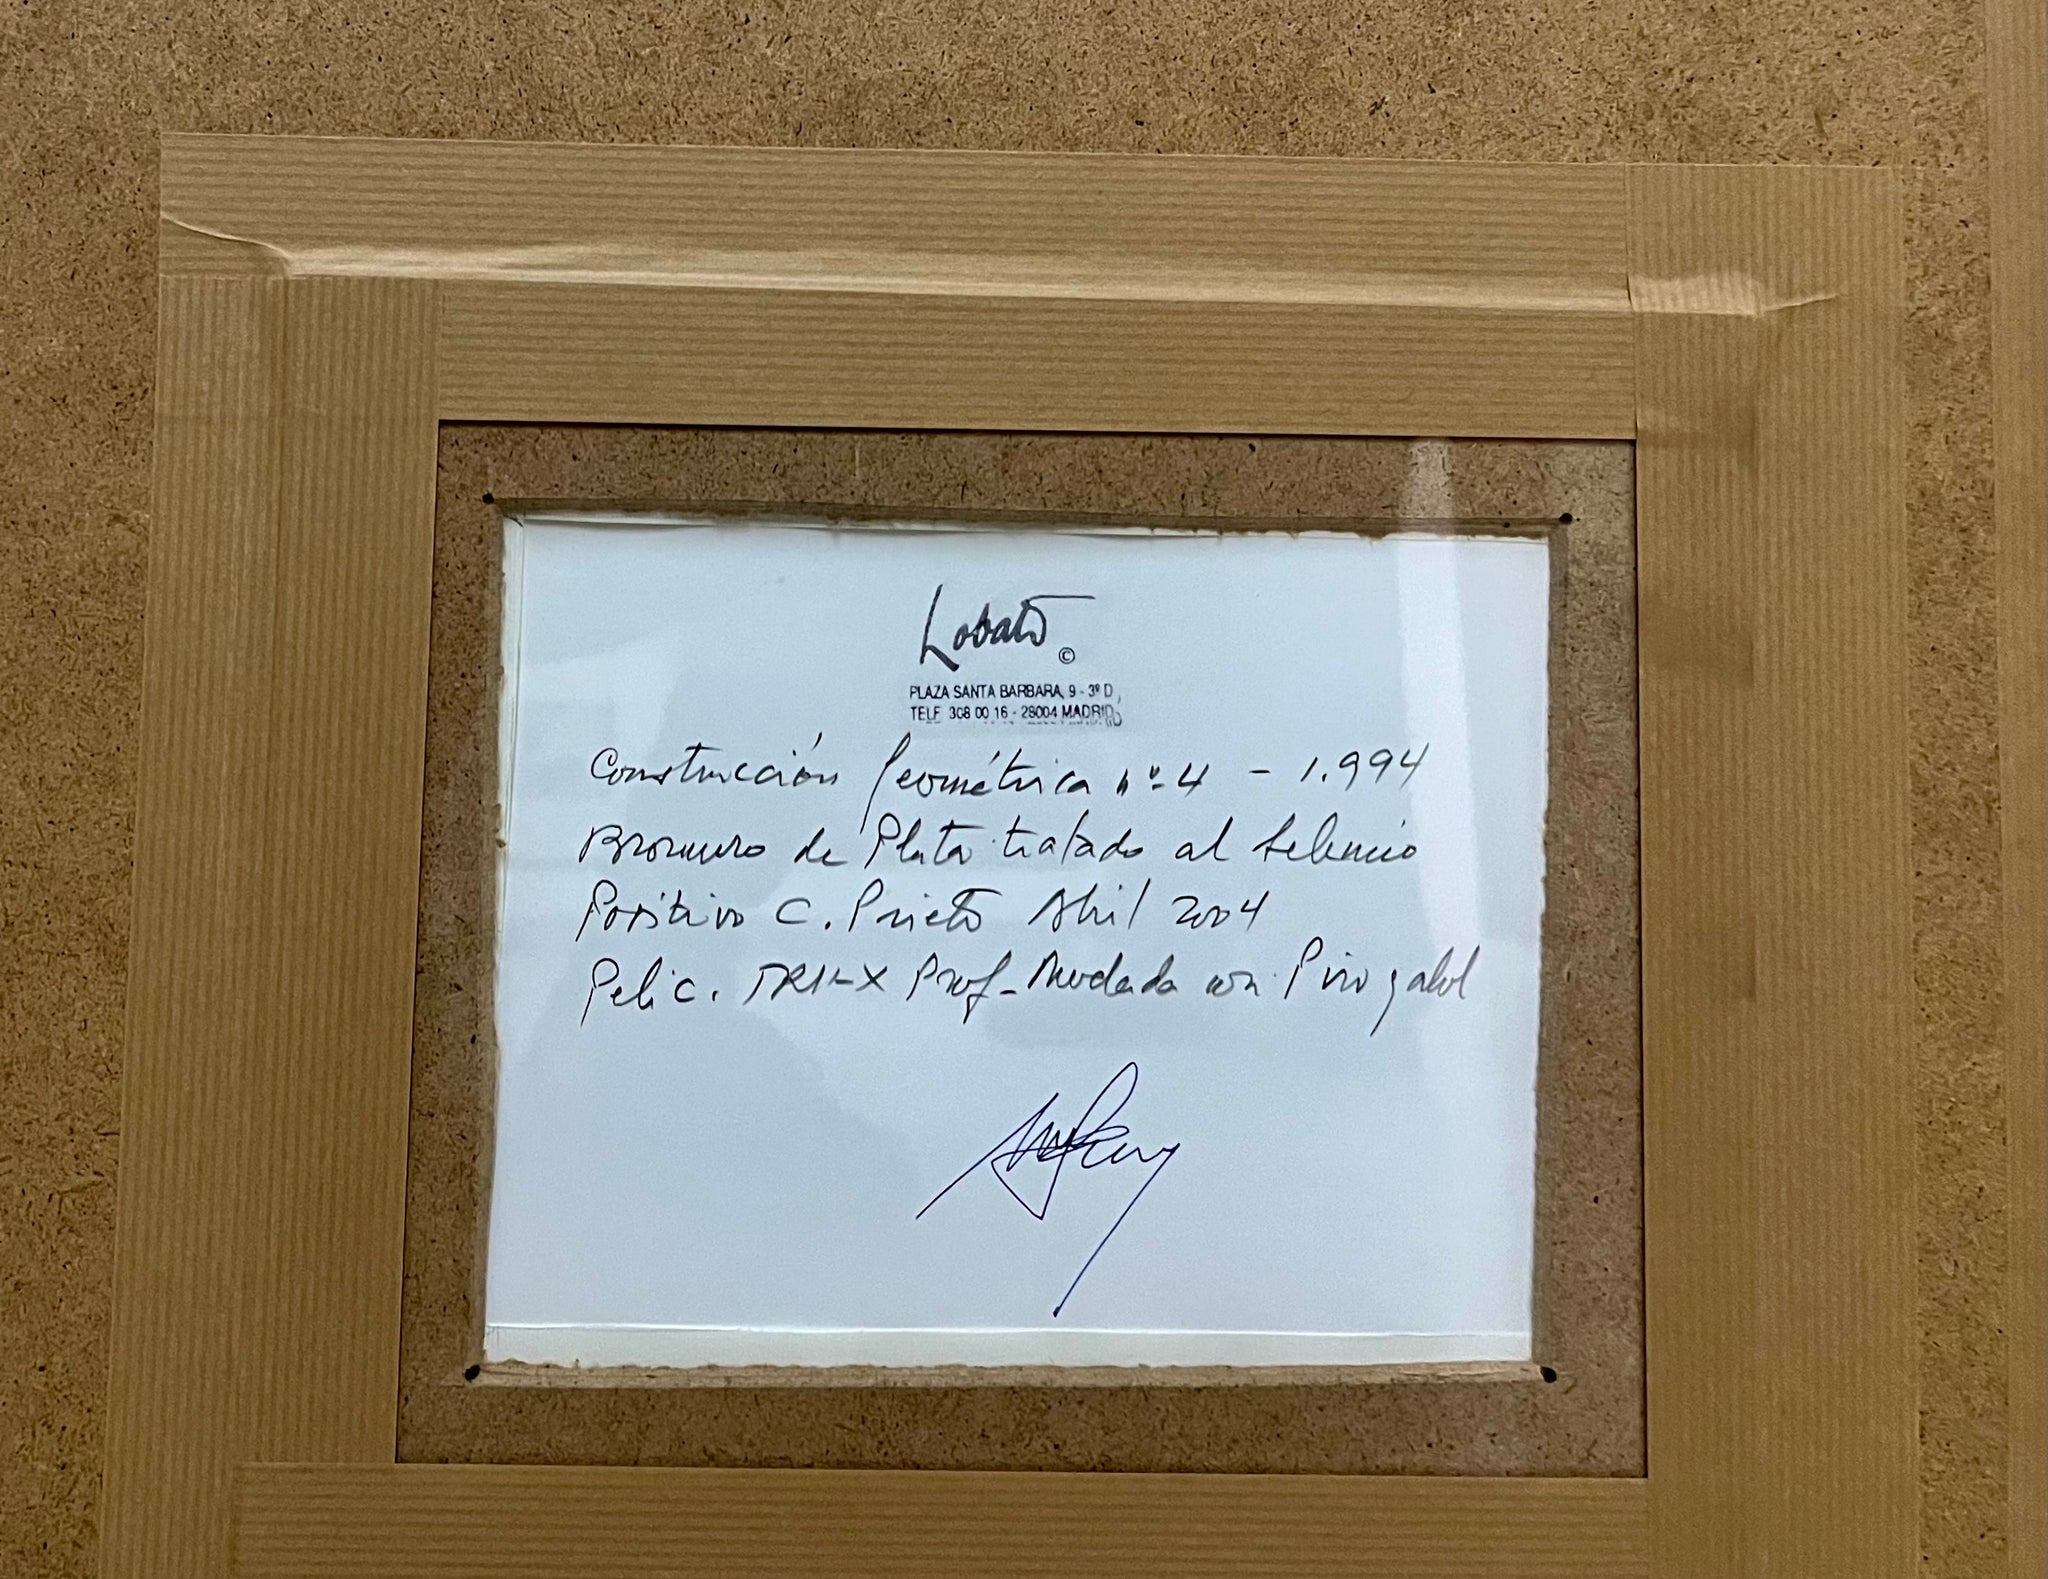 Lobato ©
PLAZA SANTA BARBARA, 9 - 3º D
TELF. 308 00 16 - 28004 MADRID
Construcción geométrica nº 4 - 1.994
Bromuro de Plata tratado al Selenio
Positivo C. Prieto Abril 2004
Pelic. TRI-X Prof. con Pirogalol